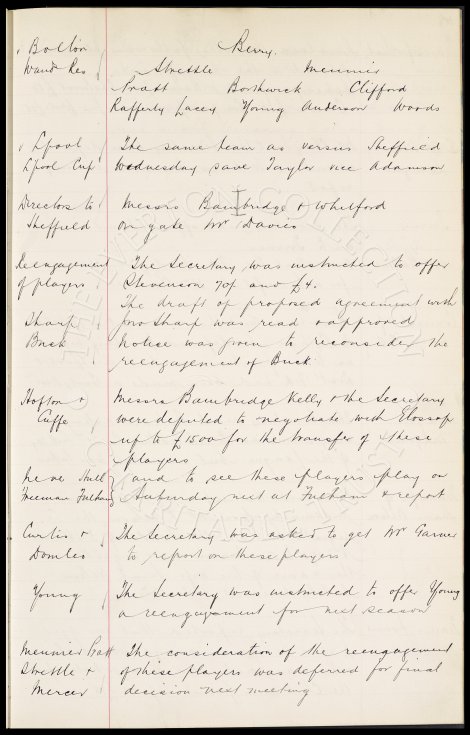 v Bolton
Wand Res
Berry.
Strettle Meunier
Pratt Borthwick Clifford
Rafferty Lacey Young Anderson Woods
v Lpool
Lpool Cup
The same team as versus Sheffield
Wednesday save Taylor vice Adamson
Directors to
Sheffield
Messrs Bainbridge & Whitford
on gate Mr Davies
Reengagement
of players
The Secretary was instructed to offer
Stevenson 70/- and £4.
Sharp
Buck
The draft of proposed agreement with
Jno Sharp was read & approved
Notice was given to reconsider the
reengagement of Buck
Hofton &
Cuffe
Messrs Bainbridge Kelly & the Secretary
were deputed to negotiate with Glossop
up to £1500 for the transfer of these
players
Neve Hull
Freeman Fulham
and to see these players play on
Saturday next at Fulham & report
Curtis &
The Secretary was asked to get Mr Garner
to report on these players
Young
The Secretary was instructed to offer Young
a reengagement for next season
Meunier Pratt
Strettle &
Mercer
The consideration of the reengagement
of these players was deferred for final
decision next meeting
THE EVERTON COLLECTION
CHARITABLE TRUST